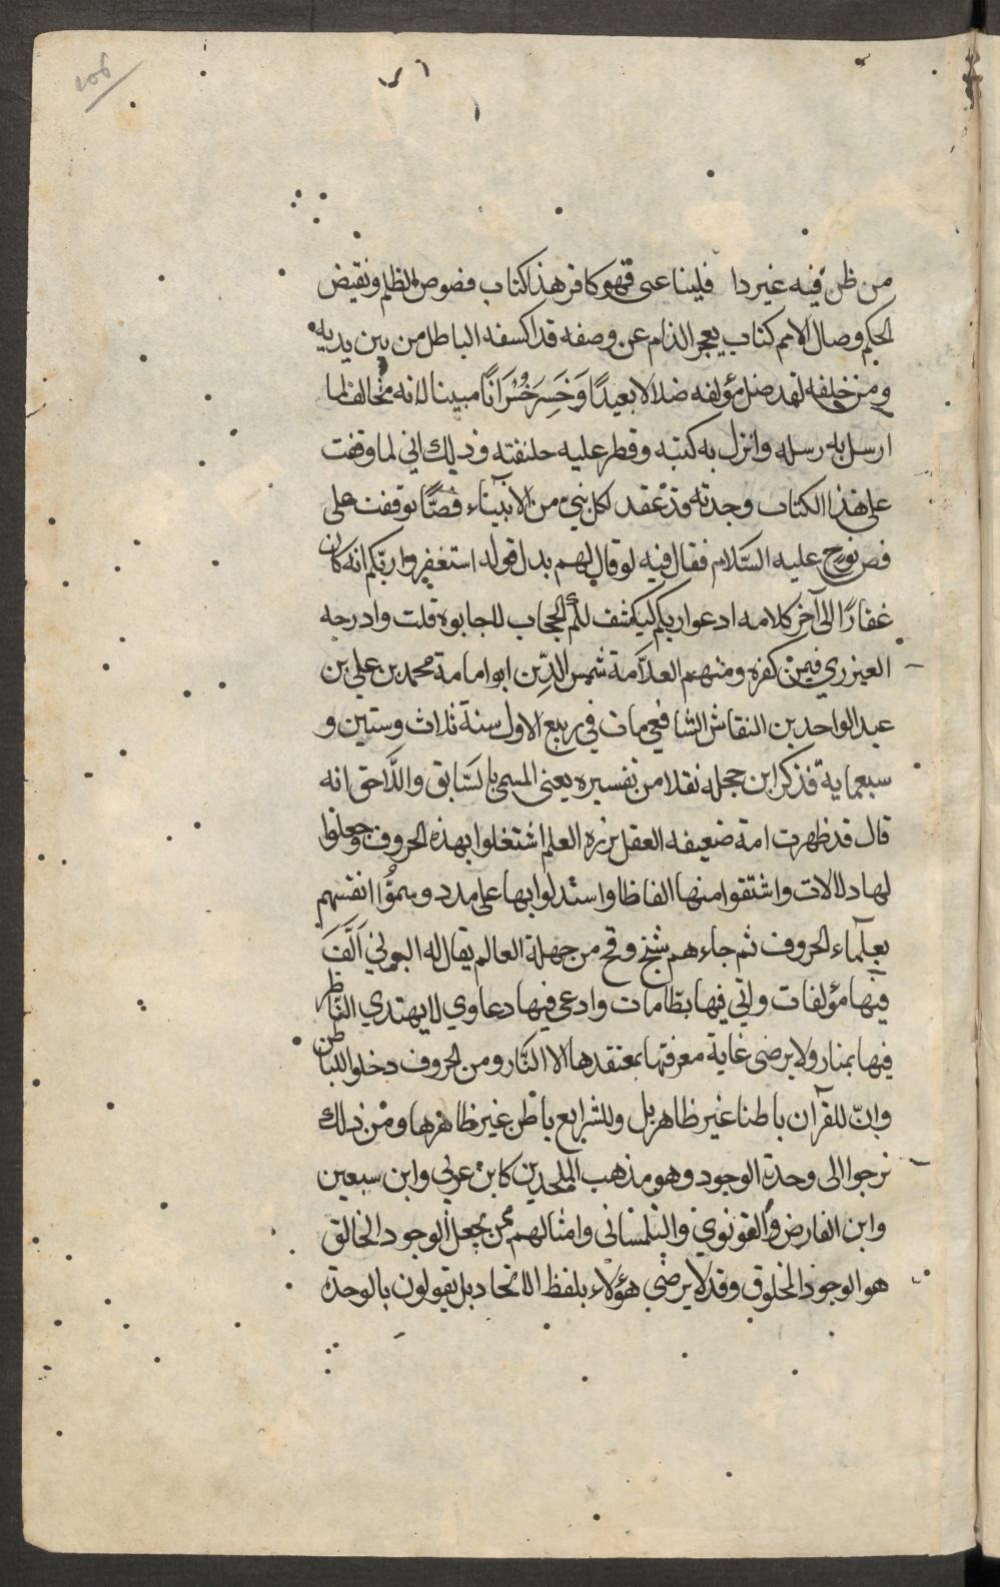 106
من ظن فيه غير ذا فلينا عنى فهو كافر هذا كتاب فصوص الظلم ونقيض
الحكم وصال الامم كتاب يعجز الذام عن وصفه قد اكسفه الباطل من بين يديه
ومن خلفه لقد ضل مؤلفه ضلالا بعيدًا وَخَسِرَ خُسْرَانًا مبينا لانه مخالف لما
ارسل به رسله وانزل به كتبه وفطر عليه خليقته وذلك اني لما وقفت
على هذا الكتاب وجدته قد عقد لكل نبي من الانبياء فصًّا فوقفت على
فص نوح عليه السّلام فقال فيه لو قال لهم بدل قوله استغفروا ربّكم انه كان
غفارًا الى آخر كلامه ادعوا ربكم ليكشف لكم الحجاب لاجابوه قلت وادرجه
العيزري فيمن كفره ومنهم العلاّمة شمس الدّين ابو امامة محمد بن علي بن
عبد الواحد بن النقاش الشافعي مات في ربيع الاول سنة ثلاث وستين و
سبعماية فذكر ابن حجله نقلا من تفسيره يعني المسمى بالسّابق واللّاحق انه
قال قد ظهرت امة ضعيفه العقل نزره العلم اشتغلوا بهذه الحروف وجعلوا
لها دلالات واشتقوا منها الفاظا واستدلوا بها على مدد وسمّوا انفسهم
بعلماء الحروف ثم جاءهم شيخ وقح من جهلة العالم يقال له البوني اَلَّفَ
فيها مؤلفات واتي فيها بطامات وادعى فيها دعاوي لا يهتدي النّاظر
فيها بمنار ولا يرضى غاية معرفتها بمعتقدها الا النّار ومن الحروف دخلوا للباطن
وانّ للقرآن باطنا غير ظاهر بل وللشرايع باطن غير ظاهرها ومن ذلك
نرجوا الى وحدة الوجود وهو مذهب الملحدين كابن عربي وابن سبعين
وابن الفارض والقونوي والتلمساني وامثالهم ممن يجعل الوجود الخالق
هو الوجود المخلوق وقد لا يرضي هؤلاء بلفظ الاتحاد بل يقولون بالوحدة